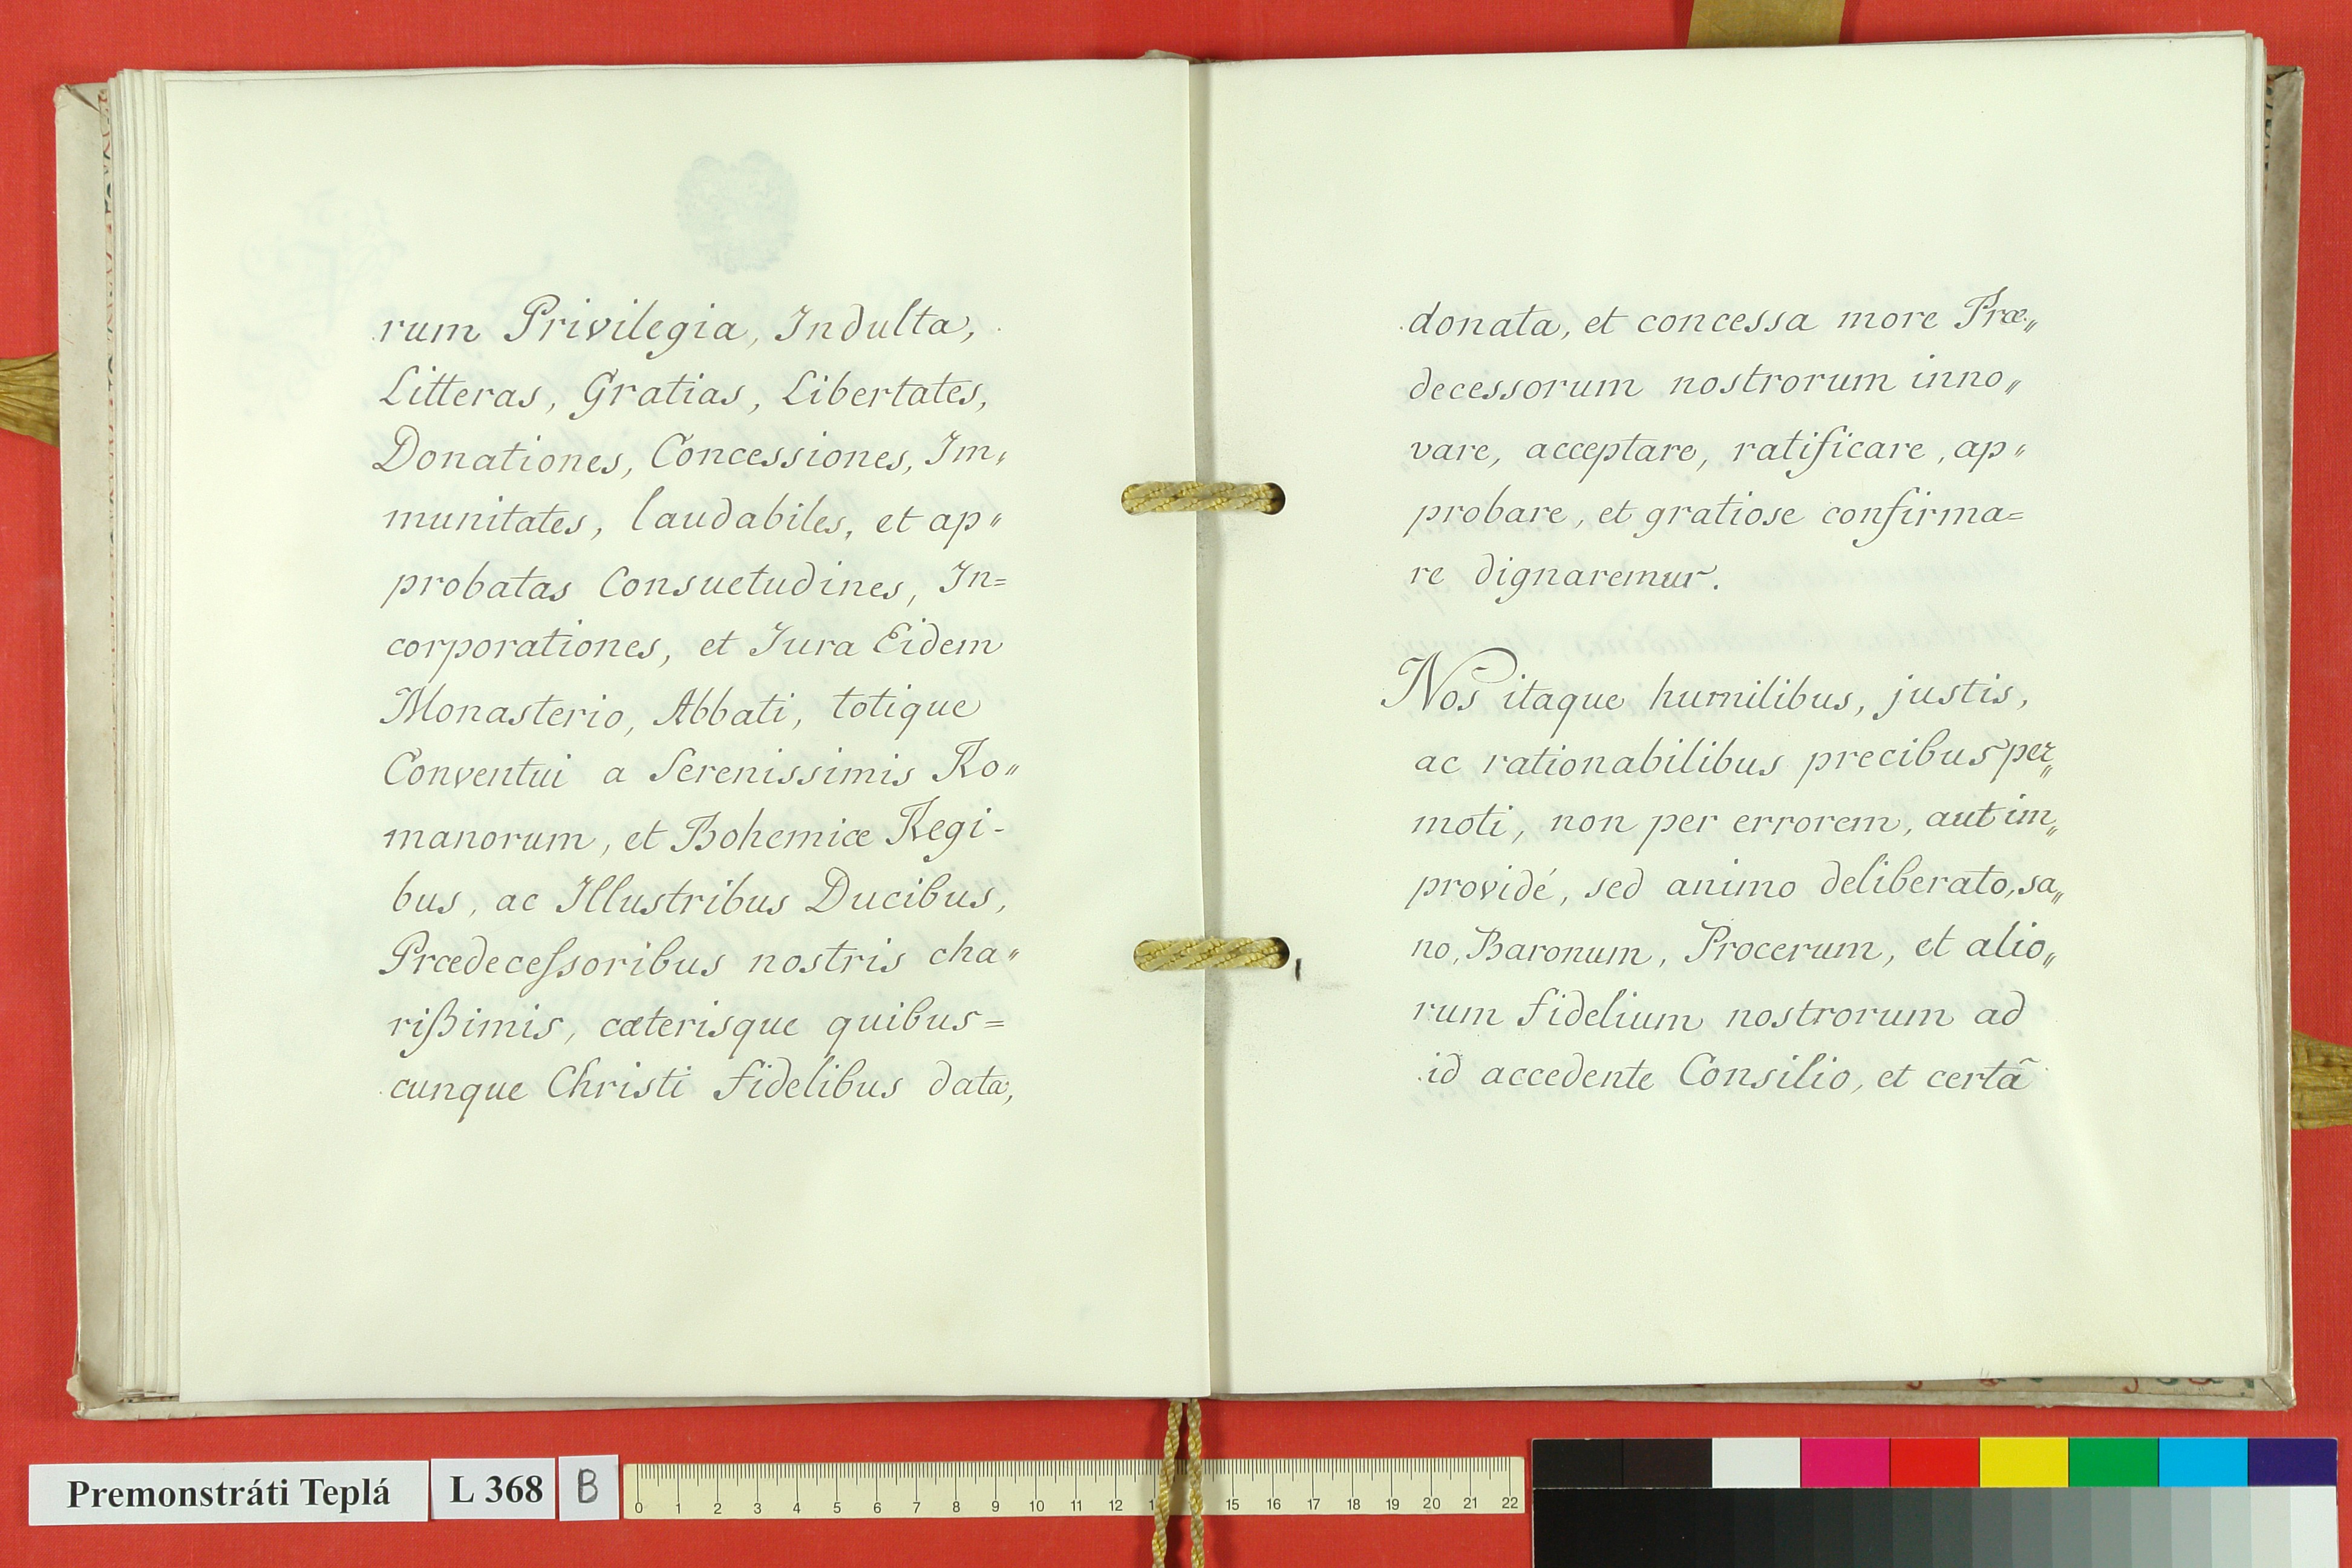 rum Privilegia, Indulta,
Litteras, Gratias, Libertates,
Donationes, Concessiones, Im„
munitates, laudabiles, et ap„
probatas Consuetudines, In=
corporationes, et Jura Eidem
Monasterio, Abbati, totique
Conventui a Serenissimis Ro„
manorum, et Bohemiæ Regi-
bus, ac Illustribus Ducibus,
Prædeceſsoribus nostris cha„
rißimis, cæterisque quibus=
cunque Christi fidelibus data,
donata, et concessa more Præ„
decessorum nostrorum inno„
vare, acceptare, ratificare, ap„
probare, et gratiose confirma=
re dignaremur.
Nos itaque humilibus, justis,
ac rationabilibus precibus per„
moti, non per errorem, aut im„
providé, sed animo deliberato, sa„
no, Baronum, Procerum, et alio„
rum fidelium nostrorum ad
id accedente Consilio, et certã
Premonstráti Teplá L 368 B
0 1 2 3 4 5 6 7 8 9 10 11 12 15 16 17 18 19 20 21 22